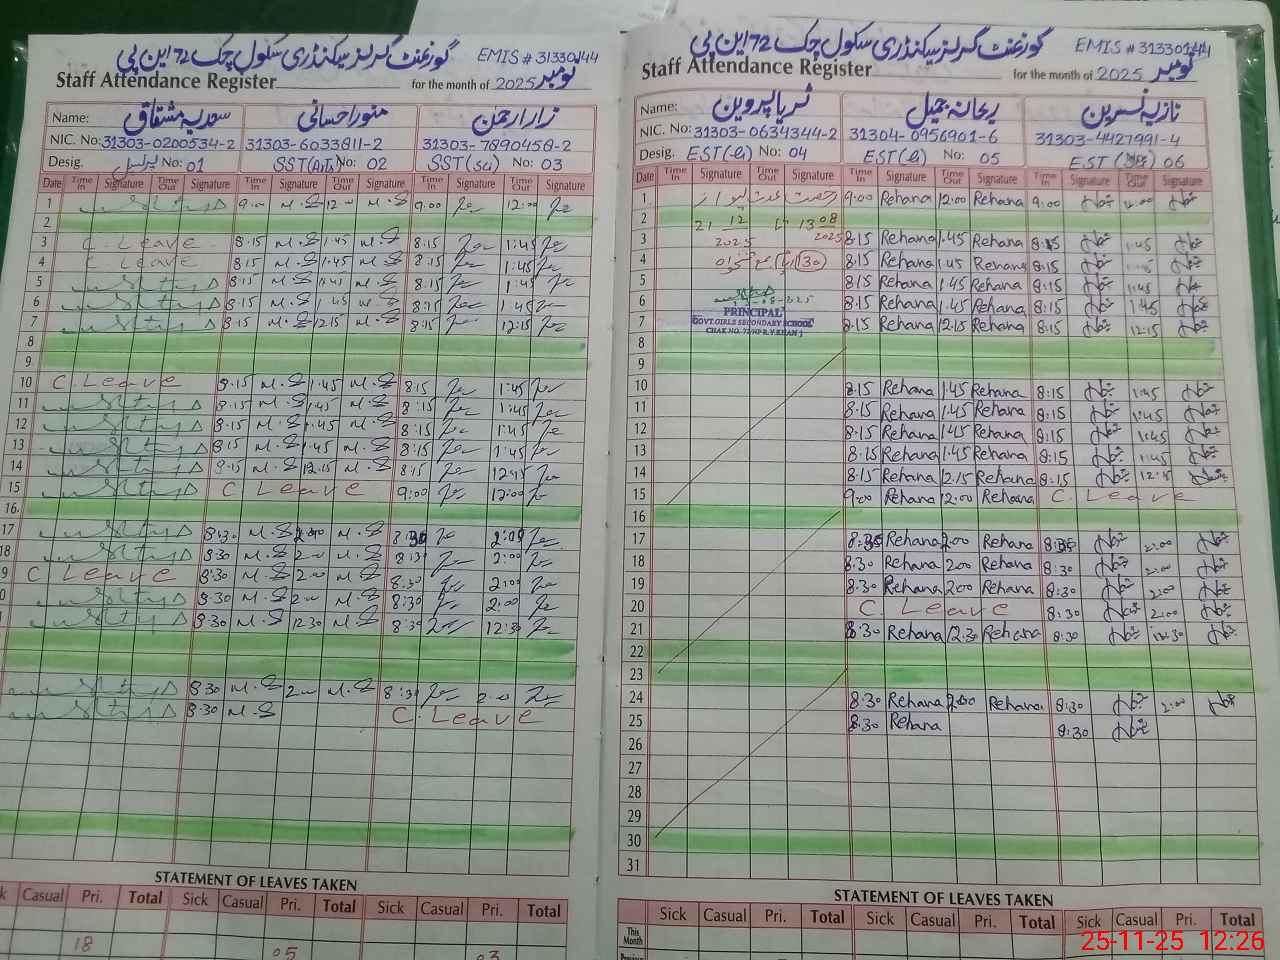 گورنمنٹ گرلز سیکنڈری سکول چک 72 این پی EMIS # 31330144
Staff Attendance Register for the month of نومبر 2025
Name: سعدیہ مشتاق منور احسانی زارا رحمٰن
NIC. No: 31303-0200534-2 31303-6033811-2 31303-7890458-2
Desig. پرنسپل No: 01 SST(Arts) No: 02 SST(Sci) No: 03
Date Time In Signature Time Out Signature Time In Signature Time Out Signature Time In Signature Time Out Signature
1 9.00 M.S 12.00 M.S 9.00 12:00
2
3 C. Leave 8.15 M.S 1.45 M.S 8:15 1:45
4 C. Leave 8.15 M.S 1.45 M.S 8:15 1:45
5 8.15 M.S 1.45 M.S 8:15 1:45
6 8.15 M.S 1.45 M.S 8:15 1:45
7 8.15 M.S 12.15 M.S 8:15 12:15
8
9
10 C. Leave 8.15 M.S 1.45 M.S 8:15 1:45
11 8.15 M.S 1.45 M.S 8:15 1:45
12 8.15 M.S 1.45 M.S 8:15 1:45
13 8.15 M.S 1.45 M.S 8:15 1:45
14 M.S 12.15 M.S 8:15
15 C Leave 9:00 12:00
16
17 8.30 M.S 2.00 M.S 8:30 2:00
18 8.30 M.S 2.00 M.S 8:30 2:00
9 C Leave 8.30 M.S 2.00 M.S 8:30 2:00
0 8.30 M.S 2.00 M.S 8:30 2:00
8.30 M.S 12.30 M.S 8:30 12:30
8.30 M.S 2.00 M.S 8:30 2.00
8.30 M.S C. Leave
STATEMENT OF LEAVES TAKEN
k Casual Pri. Total Sick Casual Pri. Total Sick Casual Pri. Total
18 05 03
گورنمنٹ گرلز سیکنڈری سکول چک 72 این پی EMIS # 31330144
Staff Attendance Register for the month of نومبر 2025
Name: ثریا پروین ریحانہ جمیل نازیہ نسرین
NIC. No: 31303-0634344-2 31304-0956901-6 31303-4427991-4
Desig. EST No: 04 EST No: 05 EST 06
Date Time In Signature Time Out Signature Time In Signature Time Out Signature Time In Signature Time Out Signature
1 رخصت عدت 9.00 Rehana 12.00 Rehana 9:00 12:00
2 21 12 2025 13 08 2025
3 8.15 Rehana 1.45 Rehana 8:15 1:45
4 (130) 8.15 Rehana 1.45 Rehana 8:15 1:45
5 8.15 Rehana 1.45 Rehana 8:15 1:45
6 8.15 Rehana 1.45 Rehana 8:15 1:45
PRINCIPAL
GOVT.GIRLS SECONDARY SCHOOL
CHAK NO. 72/NP R.Y.KHAN
7 8.15 Rehana 12.15 Rehana 8:15 12:15
8
9
10 8.15 Rehana 1.45 Rehana 8:15 1:45
11 8.15 Rehana 1.45 Rehana 8:15 1:45
12 8.15 Rehana 1.45 Rehana 8:15 1:45
13 8.15 Rehana 1.45 Rehana 8:15 1:45
14 8.15 Rehana 12.15 Rehana 8:15 12:15
15 9.00 Rehana 12.00 Rehana C. Leave
16
17 Rehana 2.00 Rehana 2:00
18 8.30 Rehana 2.00 Rehana 8:30 2:00
19 8.30 Rehana 2.00 Rehana 8:30 2:00
20 C. Leave 8:30 2:00
21 8.30 Rehana 12.30 Rehana 8:30 12:30
22
23
24 8.30 Rehana 2.00 Rehana 8:30 2:00
25 8.30 Rehana 8:30
26
27
28
29
30
31
STATEMENT OF LEAVES TAKEN
Sick Casual Pri. Total Sick Casual Pri. Total Sick Casual Pri. Total
This Month
Previous
25-11-25 12:26